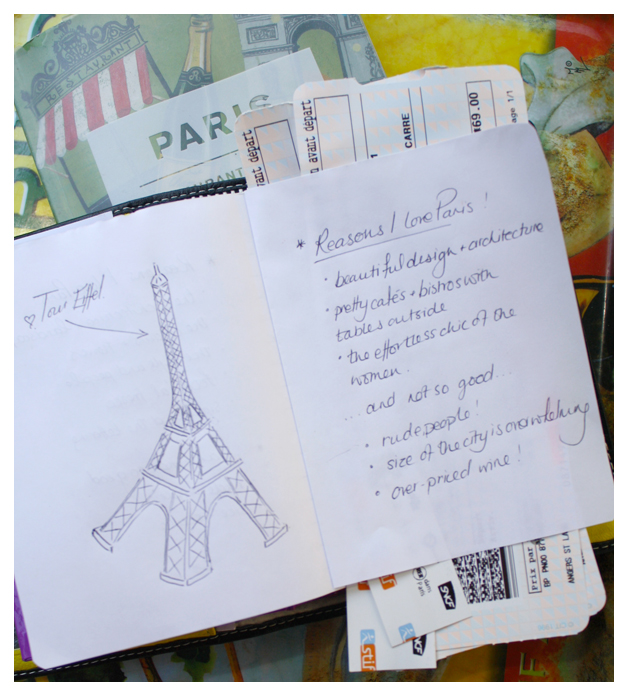 RESTAURANT
PARIS
avant départ
avant départ
CARRE
¤69.00
page 1/1
♡ Tour Eiffel.
* Reasons I love Paris !
· beautiful design + architecture
· pretty cafés + bistros with
tables outside
· the effortless chic of the
women.
... and not so good...
· rude people!
· size of the city is overwhelming
· over-priced wine !
stif
SNCF
stif
SNCF
Prix par
ANGERS ST LA